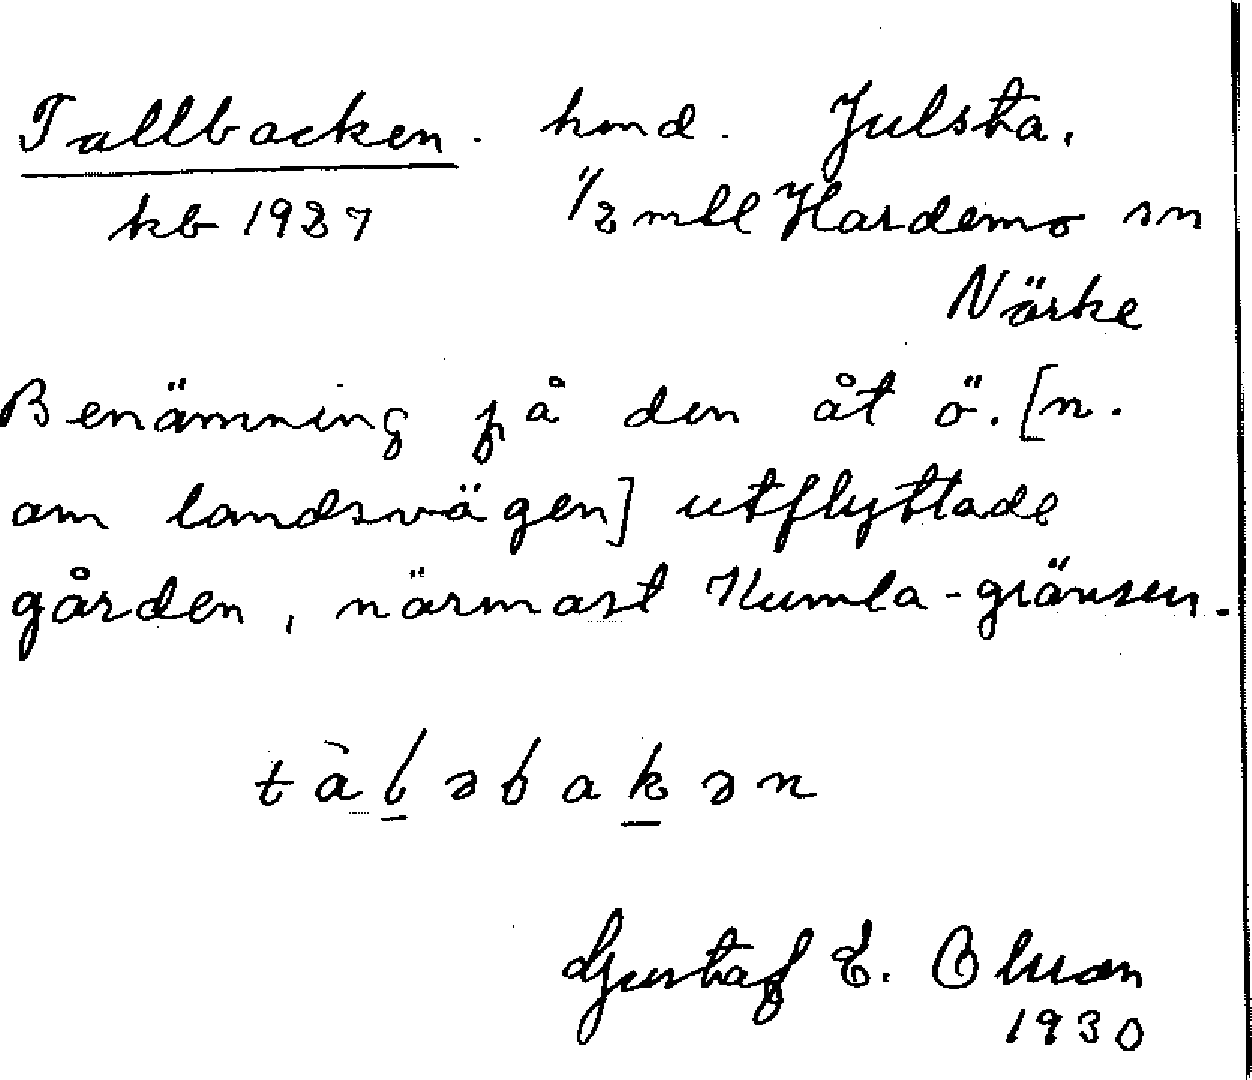 Tallbacken. hmd. Julsta.
kb 1927 1/2 mtl Hardemo sn
Närke
Benämning på den åt ö. [n.
om landsvägen] utflyttade
gården, närmast Kumla-gränsen.
tàləbakən
Gustaf E. Olsson
1930